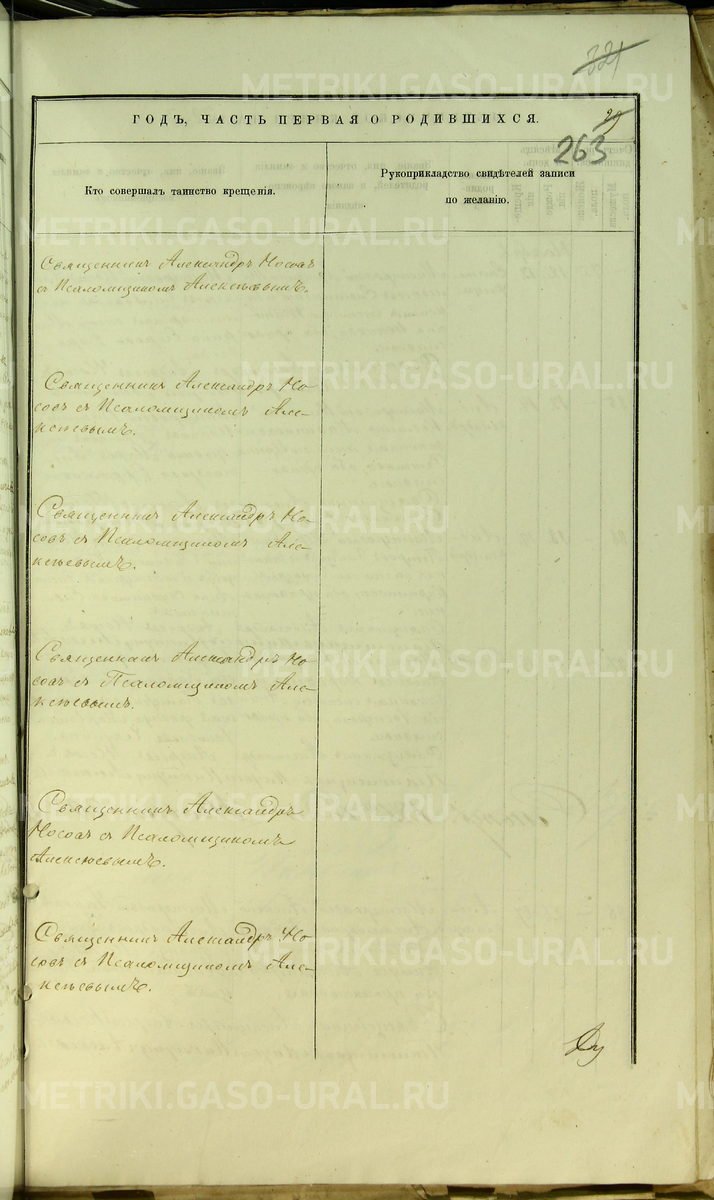 321
ГОДЪ, ЧАСТЬ ПЕРВАЯ О РОДИВШИХСЯ.
29
263
Кто совершалъ таинство крещенія.
Рукоприкладство свидѣтелей записи
по желанію.
Священникъ Александръ Носовъ
съ Псаломщикомъ Алексѣевымъ.
Священникъ Александръ Но-
совъ съ Псаломщикомъ Але-
ксѣевымъ.
Священникъ Александръ Но-
совъ съ Псаломщикомъ Але-
ксѣевымъ.
Священникъ Александръ Но-
совъ съ Псаломщикомъ Але-
ксѣевымъ.
Священникъ Александръ
Носовъ съ Псаломщикомъ
Алексѣевымъ.
Священникъ Александръ Но-
совъ съ Псаломщикомъ Але-
ксѣевымъ.
METRIKI.GASO-URAL.RU
METRIKI.GASO-URAL.RU
METRIKI.GASO-URAL.RU
METRIKI.GASO-URAL.RU
METRIKI.GASO-URAL.RU
METRIKI.GASO-URAL.RU
METRIKI.GASO-URAL.RU
METRIKI.GASO-URAL.RU